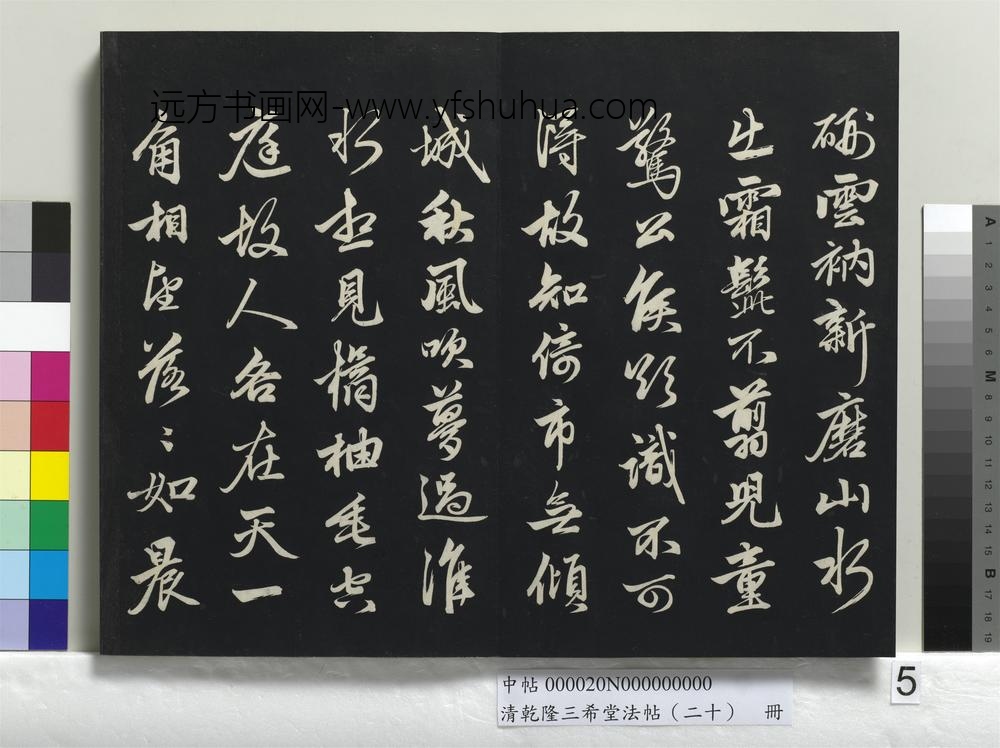 远方书画网-www.yfshuhua.com
硎雲衲新磨山水
出霜髭不翦兒童
驚公侯欲識不可
得故知倚市無傾
城秋風吹夢過淮
水想見橘柚垂空
庭故人各在天一
角相望落〻如晨
中帖 000020N000000000
清乾隆三希堂法帖（二十） 冊
5
A
1
2
3
4
5
6
M
8
9
10
11
12
13
14
15
B
17
18
19